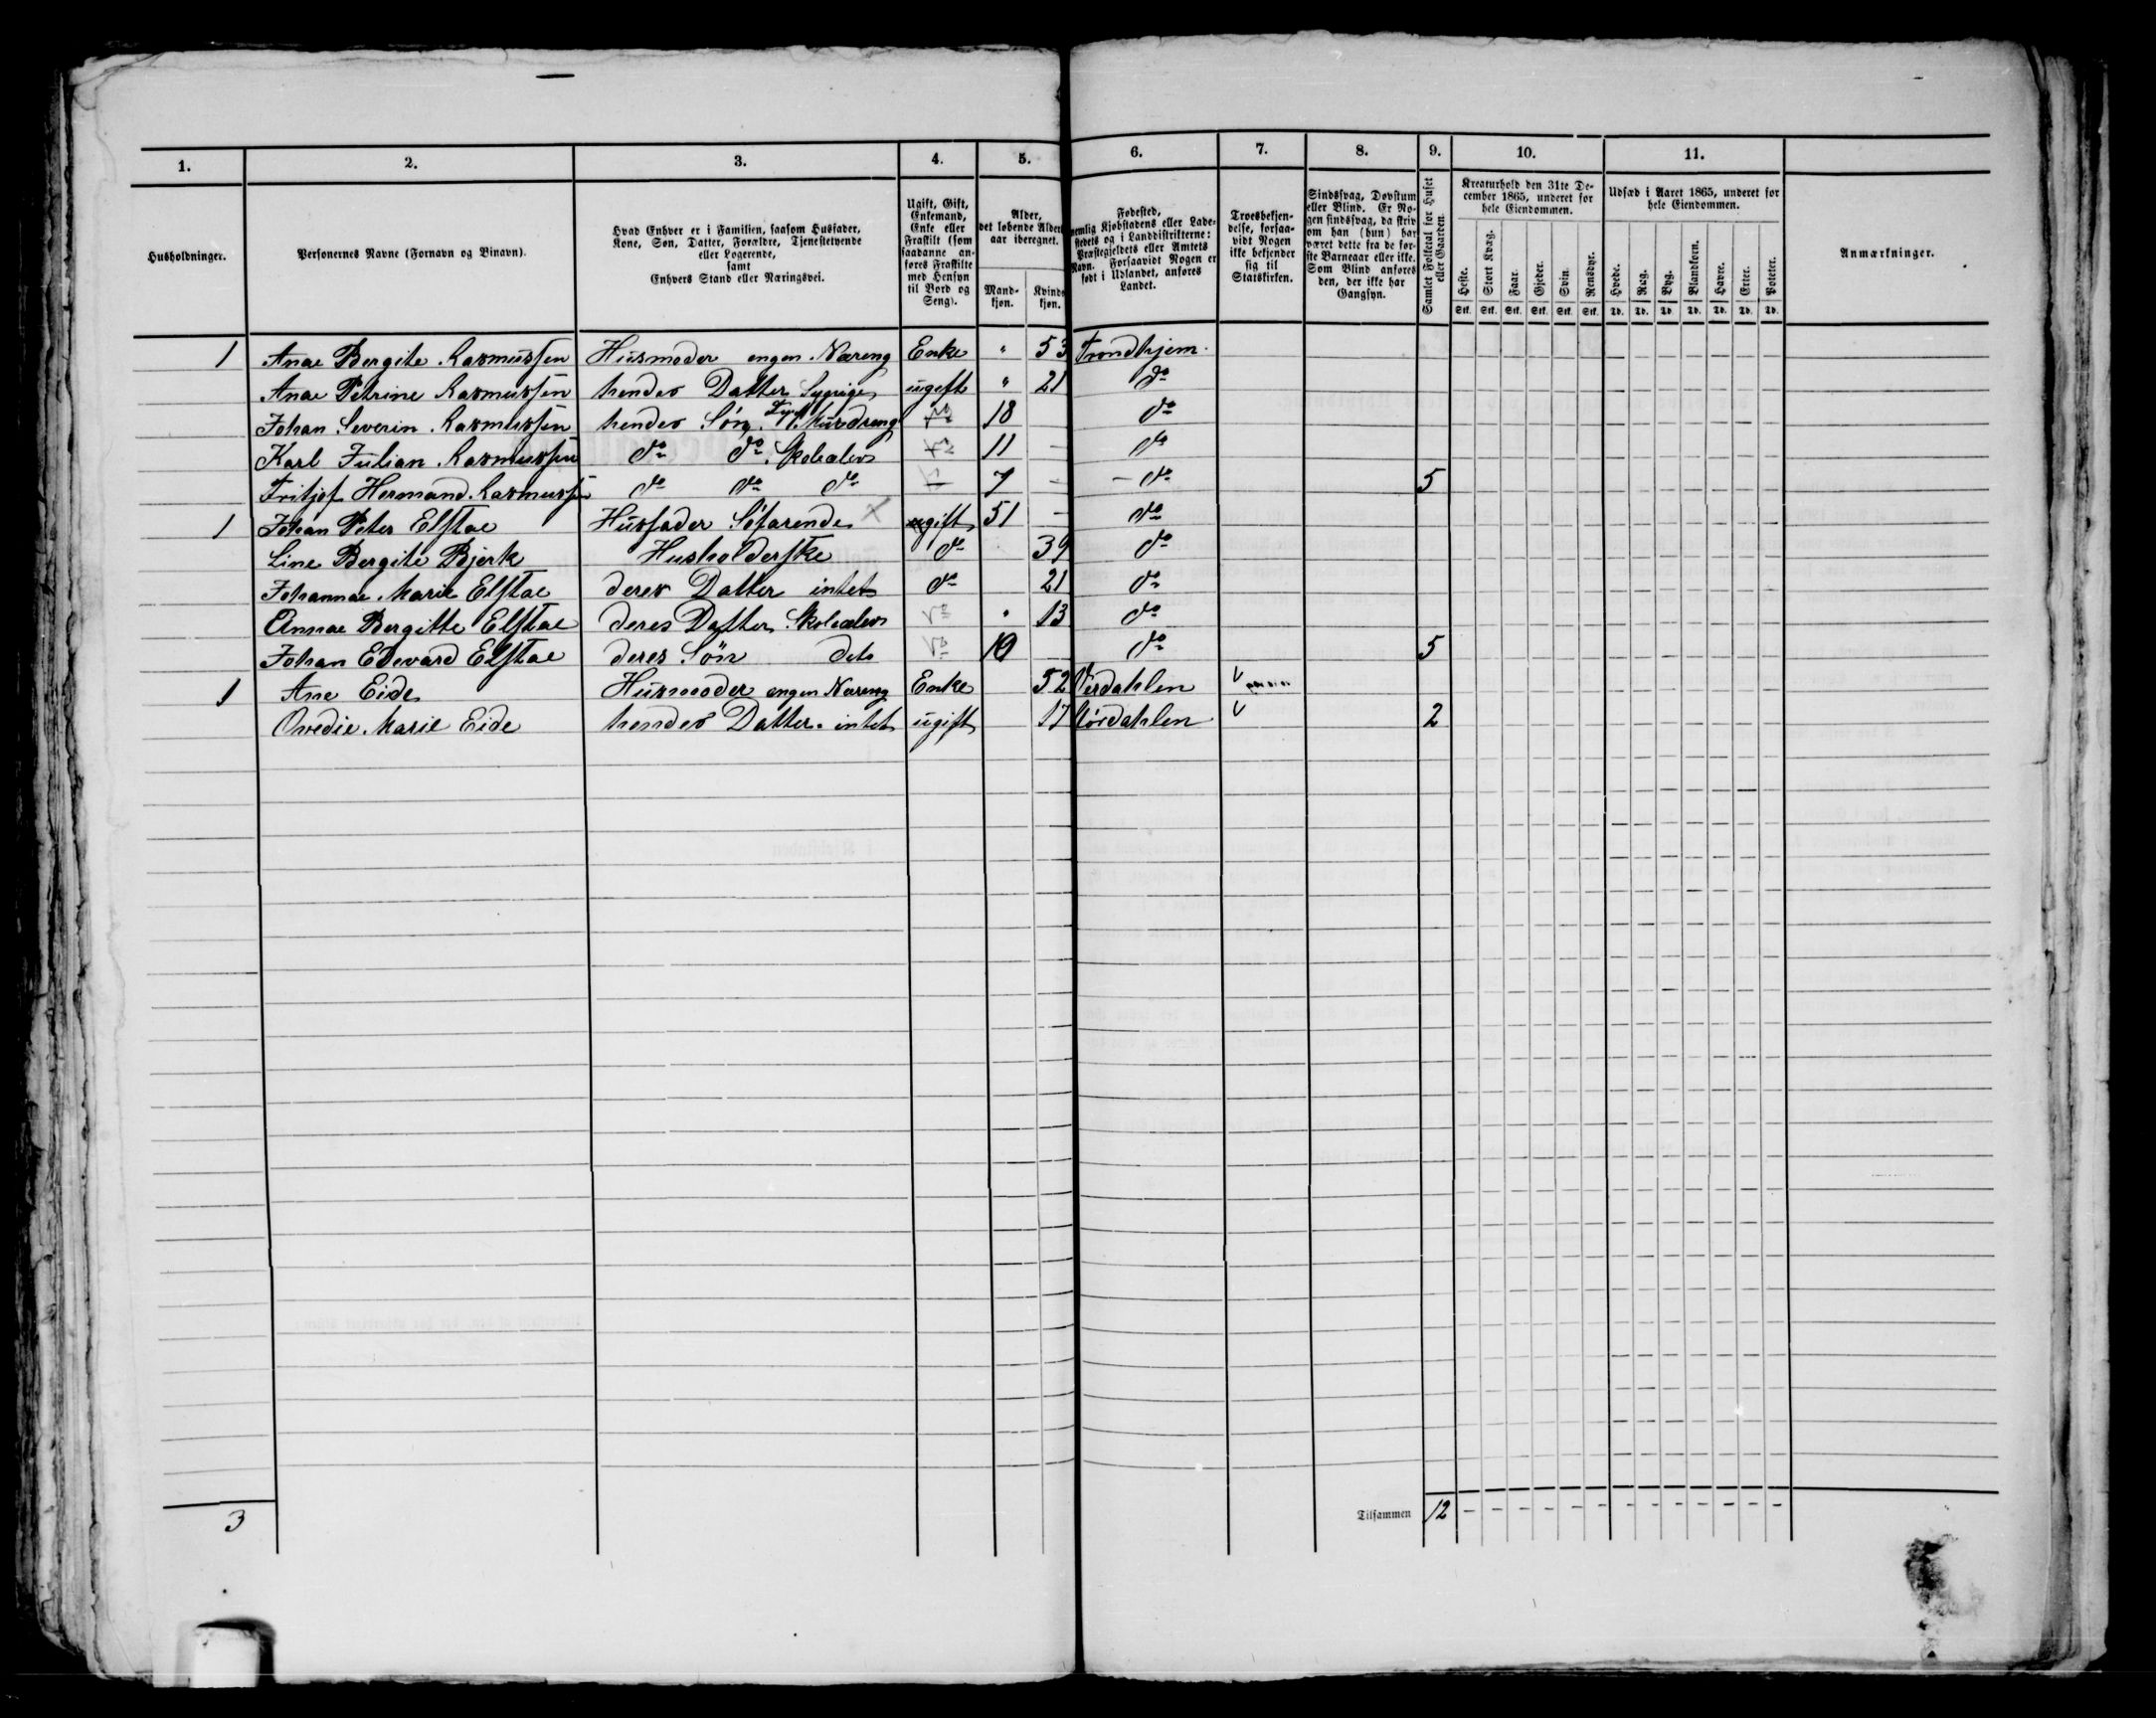 1. 2. 3. 4. 5. 6. 7. 8. 9. 10. 11.
Husholdninger.
Personernes Navne (Fornavn og Binavn).
Hvad Enhver er i Familien, saasom Husfader,
Kone, Søn, Datter, Forældre, Tjenestetyende
eller Logerende,
samt
Enhvers Stand eller Næringsvei.
Ugift, Gift,
Enkemand,
Enke eller
Fraskilt (som
saadanne an-
føres Fraskilte
med Hensyn
til Bord og
Seng).
Alder,
det løbende Alders-
aar iberegnet.
Mand-
kjøn.
Kvinde-
kjøn.
Fødested,
nemlig Kjøbstadens eller Lade-
stedets og i Landdistrikterne:
Præstegjeldets eller Amtets
Navn. Forsaavidt Nogen er
født i Udlandet, anføres
Landet.
Troesbekjen-
delse, forsaa-
vidt Nogen
ikke bekjender
sig til
Statskirken.
Sindssvag, Døvstum
eller Blind. Er No-
gen sindssvag, da skriv
om han (hun) har
været dette fra de før-
ste Barneaar eller ikke.
Som Blind anføres
den, der ikke har
Gangsyn.
Samlet Folketal for Huset
eller Gaarden.
Kreaturhold den 31te De-
cember 1865, underet for
hele Eiendommen.
Heste. Stort Kvæg. Faar. Gjeder. Svin. Rensdyr.
Stk. Stk. Stk. Stk. Stk. Stk.
Udsæd i Aaret 1865, underet for
hele Eiendommen.
Hvede. Rug. Byg. Blandkorn. Havre. Erter. Poteter.
Td. Td. Td. Td. Td. Td. Td.
Anmærkninger.
1 Anae Bergite Rasmussen Husmoder engen Næreng Enke " 53 Trondhjem
Anae Petrine Rasmussen hendes Datter Sypige ugift " 21 do
Johan Severin Rasmussen hendes Søn do 18 do
Karl Julian Rasmussen do do Skolealev do 11 — do
Fritjof Hermand Rasmussen do do do 7 — do 5
1 Johan Peter Elstae Husfader Søfarende ugift 51 — do
Line Bergite Bjerk Husholderske do 39 do
Johannae Marie Elstae deres Datter intet do 21 do
Annae Bergitte Elstae deres Datter Skolealev do " 13 do
Johan Edevard Elstae deres Søn deto do 10 do 5
1 Ane Eide Husmoder engen Næreng Enke 52 Verdahlen
Ovedie Marie Eide hendes Datter intet ugift 17 Størdahlen 2
3
Tilsammen 12 – – – – – – – – – – – – –